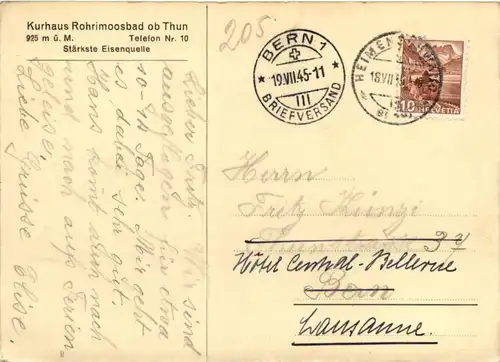 Kurhaus Rohrimoosbad ob Thun
925 m ü. M. Telefon Nr. 10
Stärkste Eisenquelle
205.
BERN 1
19.VII.45-11
III
BRIEFVERSAND
18.VII.
10
HELVETIA
Lieber Fritz. Wir sind
ausgeflogen für etwa
10-14 Tage. Mir geht
es dabei sehr gut.
Hans kommt dann nach
und nach auf Ferien-
geleise.
Liebe Grüsse Elise.
Herrn
Fritz Künzi
37
Hôtel Central-Bellevue
Bern
Lausanne.